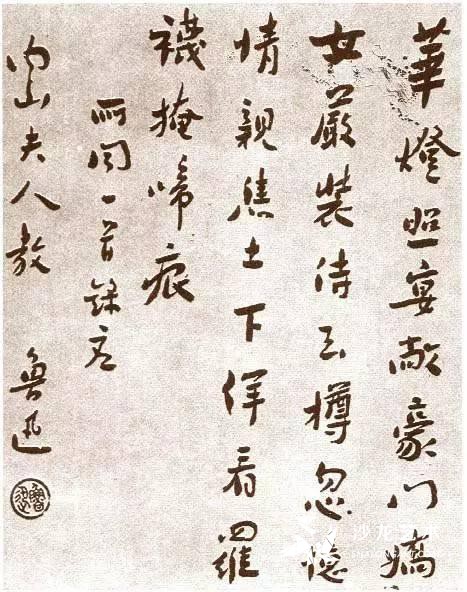 華燈照宴敞豪門嬌
女嚴裝侍玉樽忽憶
情親焦土下佯看羅
襪掩啼痕
所聞一首錄請
内山夫人教 魯迅
魯迅
沙龙